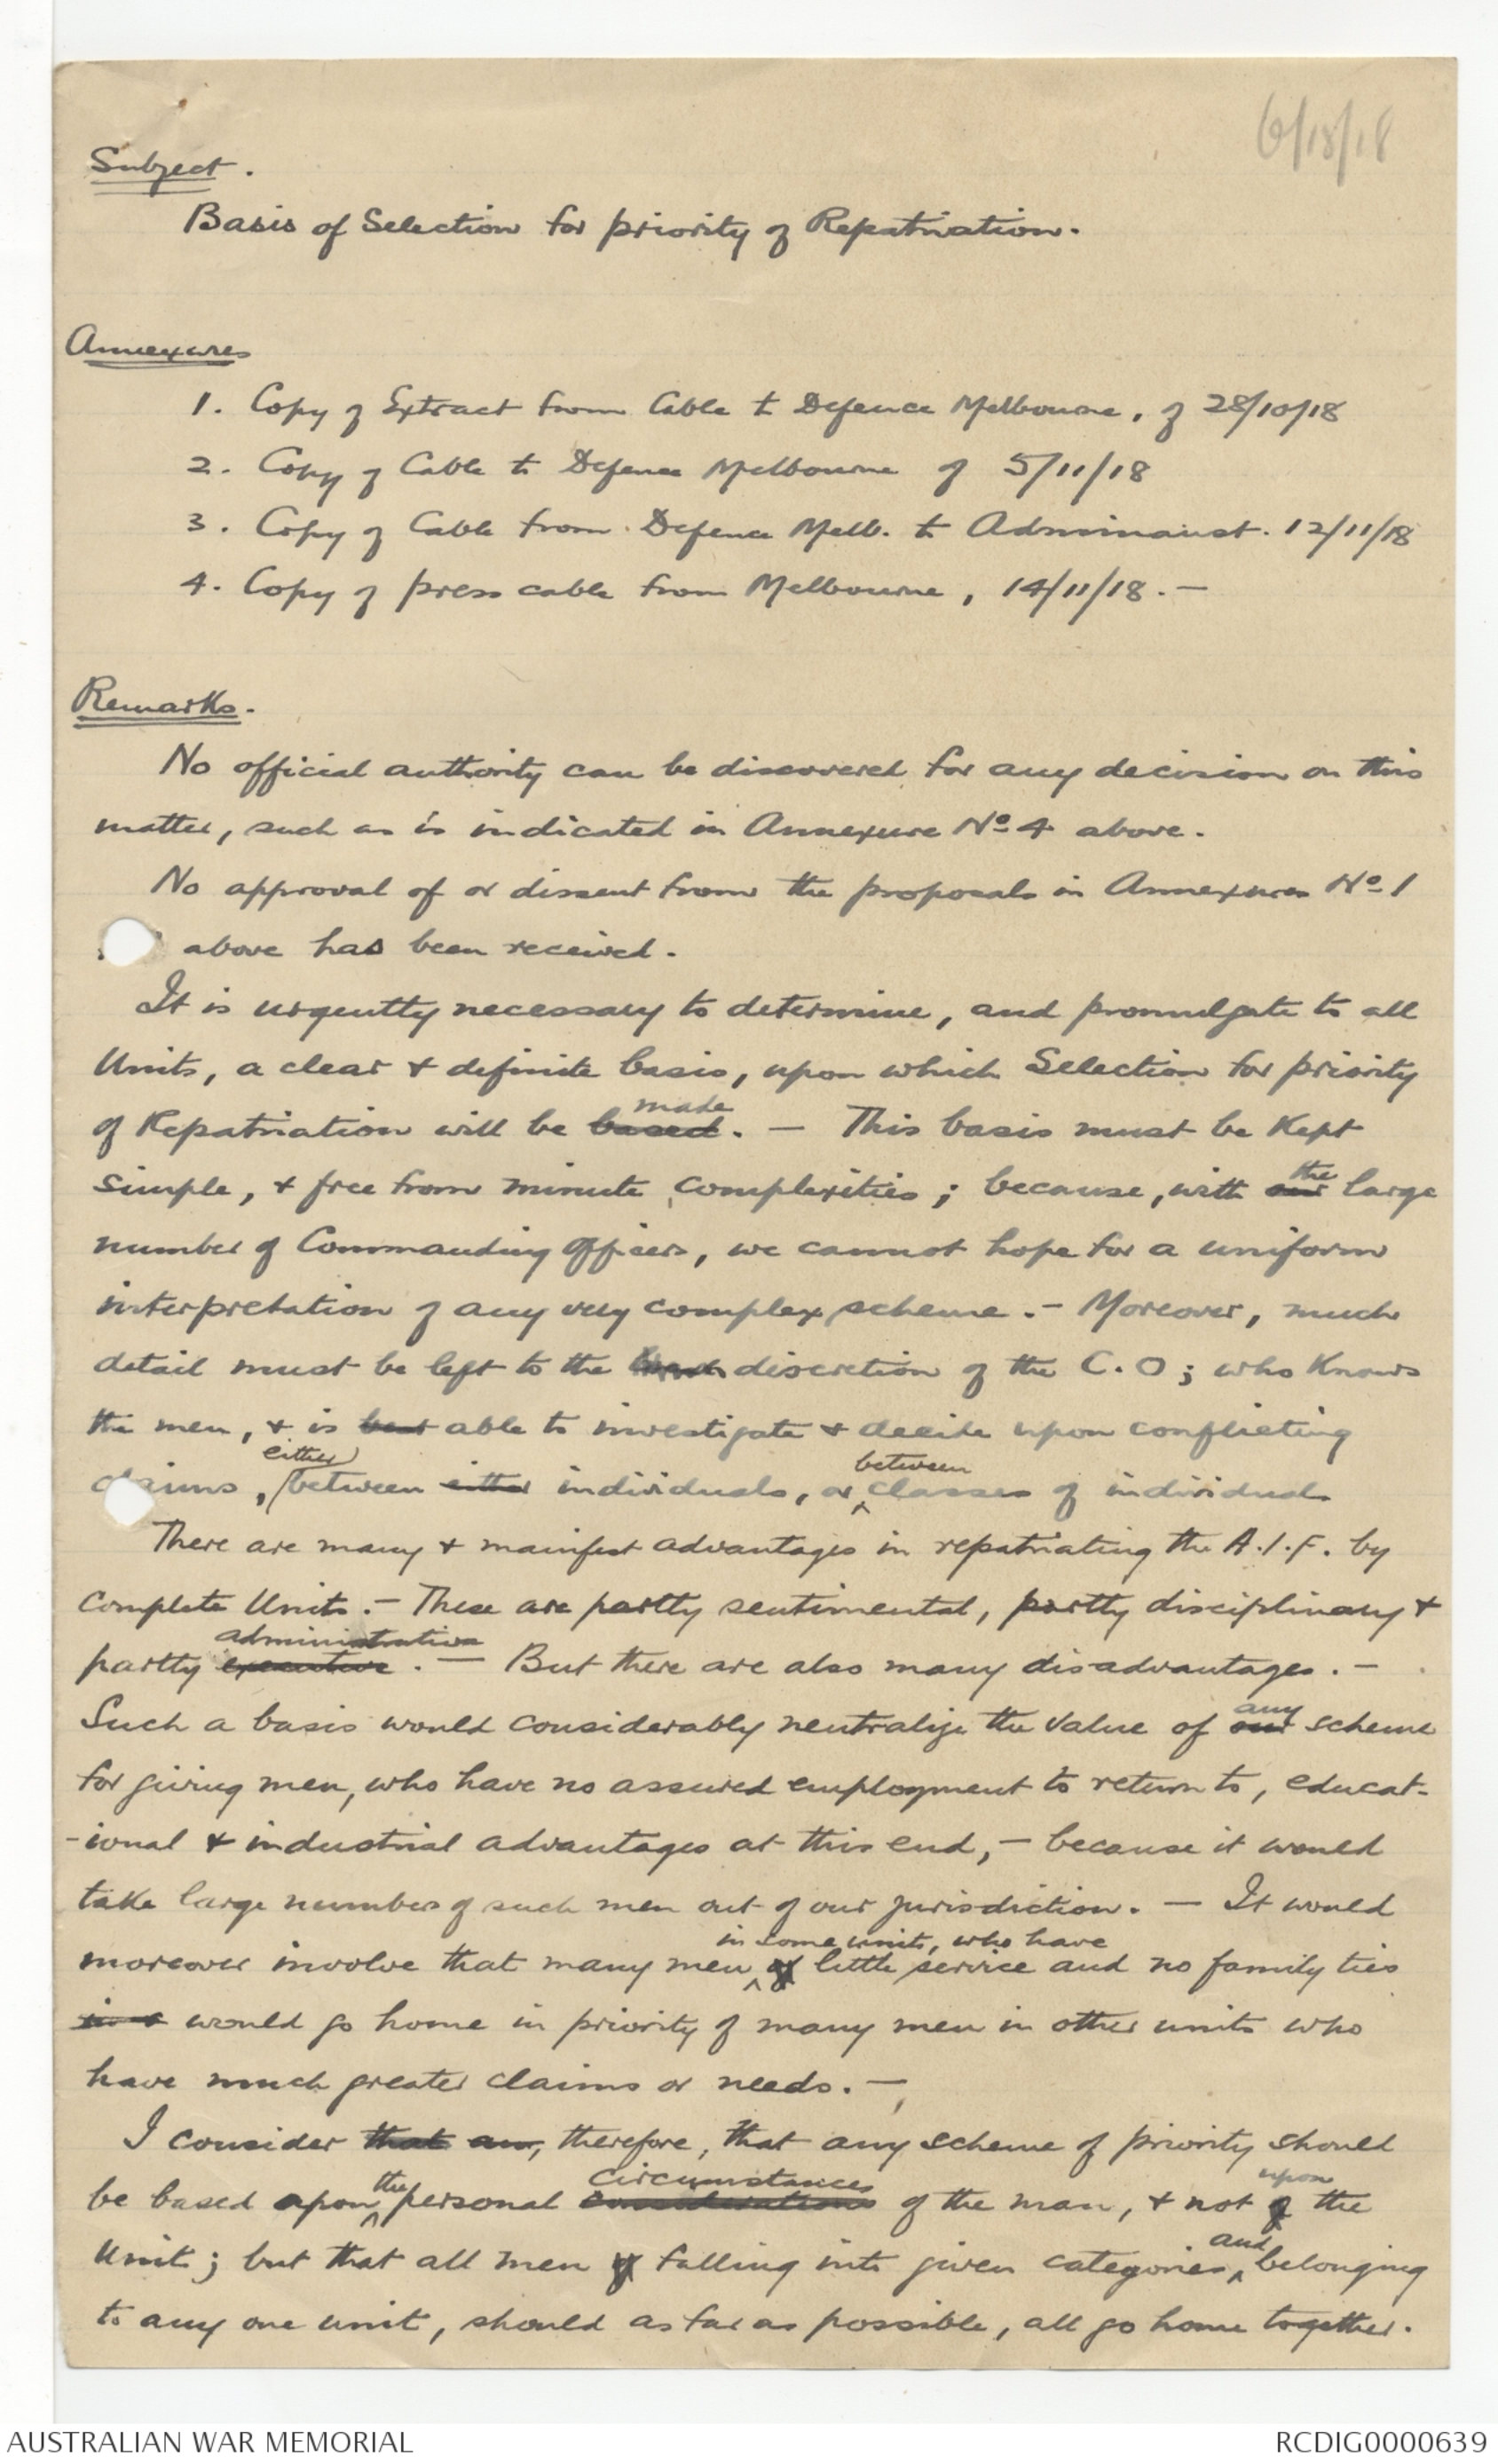 Subject.
Basis of Selection for priority of Repatriation.
Annexures
1. Copy of Extract from Cable to Defence Melbourne, of 28/10/18
2. Copy of Cable to Defence Melbourne of 5/11/18
3. Copy of Cable from Defence Melb. to Adminaust. 12/11/18
4. Copy of press cable from Melbourne, 14/11/18. —
Remarks.
No official authority can be discovered for any decision on this
matter, such as is indicated in Annexure No 4 above.
No approval of or dissent from the proposals in Annexures No 1
above has been received.
It is urgently necessary to determine, and promulgate to all
Units, a clear & definite basis, upon which Selection for priority
of Repatriation will be based made. — This basis must be kept
simple, & free from minute complexities; because, with our the large
number of Commanding Officers, we cannot hope for a uniform
interpretation of any very complex scheme. — Moreover, much
detail must be left to the discretion of the C.O; who knows
the men, & is best able to investigate & decide upon conflicting
claims, either between either individuals, or between classes of individuals
There are many & manifest advantages in repatriating the A.I.F. by
complete Units. — These are partly sentimental, partly disciplinary &
partly executive administrative. — But there are also many disadvantages. —
Such a basis would considerably neutralize the value of our any scheme
for giving men, who have no assured employment to return to, educat-
-ional & industrial advantages at this end, — because it would
take large numbers of such men out of our jurisdiction. — It would
moreover involve that many men of in some units, who have little service and no family ties
in a would go home in priority of many men in other units who
have much greater claims or needs. —
I consider that any, therefore, that any scheme of priority should
be based upon the personal considerations circumstances of the man, & not of upon the
Unit; but that all men of falling into given categories and belonging
to any one unit, should as far as possible, all go home together.
AUSTRALIAN WAR MEMORIAL
RCDIG0000639